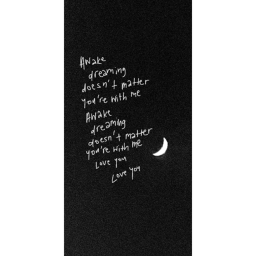 Awake
dreaming
doesn't matter
you're with me
Awake
dreaming
doesn't matter
you're with me
Love you
Love you